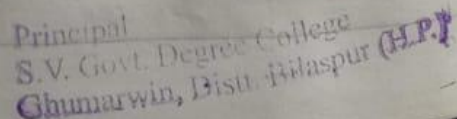 Principal
S.V. Govt. Degree College
Ghumarwin, Distt. Bilaspur (H.P.)